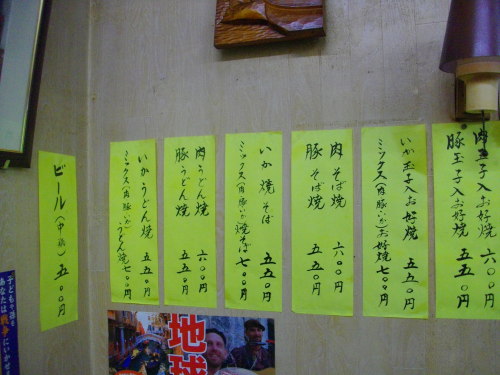 肉玉子入お好焼 六〇〇円
豚玉子入お好焼 五五〇円
いか玉子入お好焼 五五〇円
ミックス(肉豚いか)お好焼 七〇〇円
肉そば焼 六〇〇円
豚そば焼 五五〇円
いか焼そば 五五〇円
ミックス(肉豚いか)焼そば 七〇〇円
肉うどん焼 六〇〇円
豚うどん焼 五五〇円
いかうどん焼 五五〇円
ミックス(肉豚いか)うどん焼 七〇〇円
ビール(中瓶) 五〇〇円
地球
子どもや孫を
あなたは戦争にいかせ